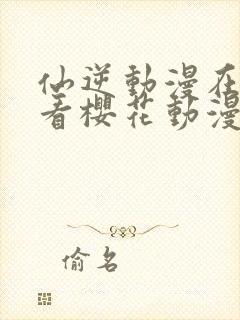 仙逆動漫在
看櫻花動漫
偷名